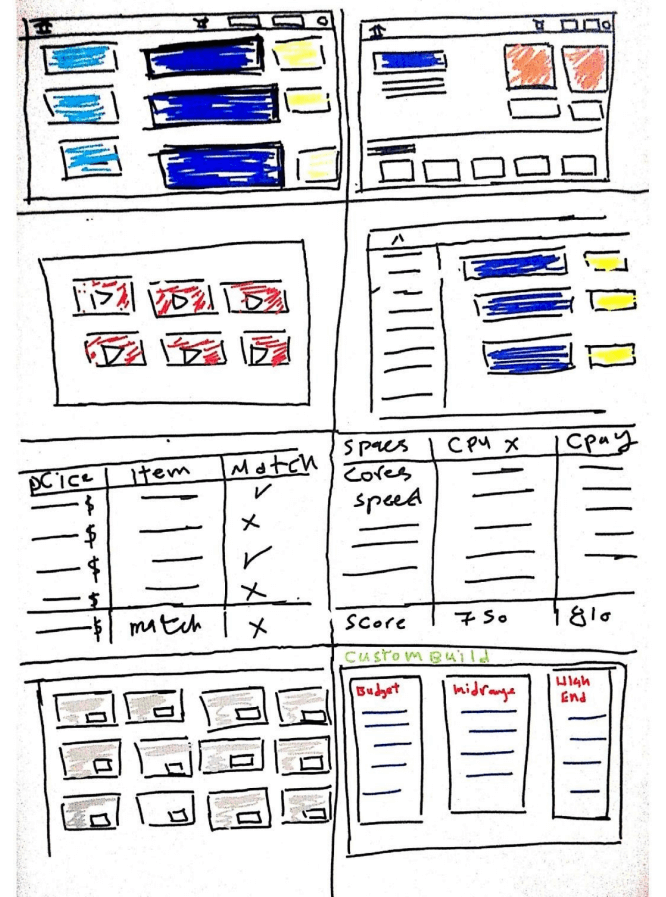 price Item Match
$ ✓
$ x
$ ✓
$ x
$ match x
spaes CPU x CPU y
cores
speed
score 750 810
Custom Build
Budget midrange High
End